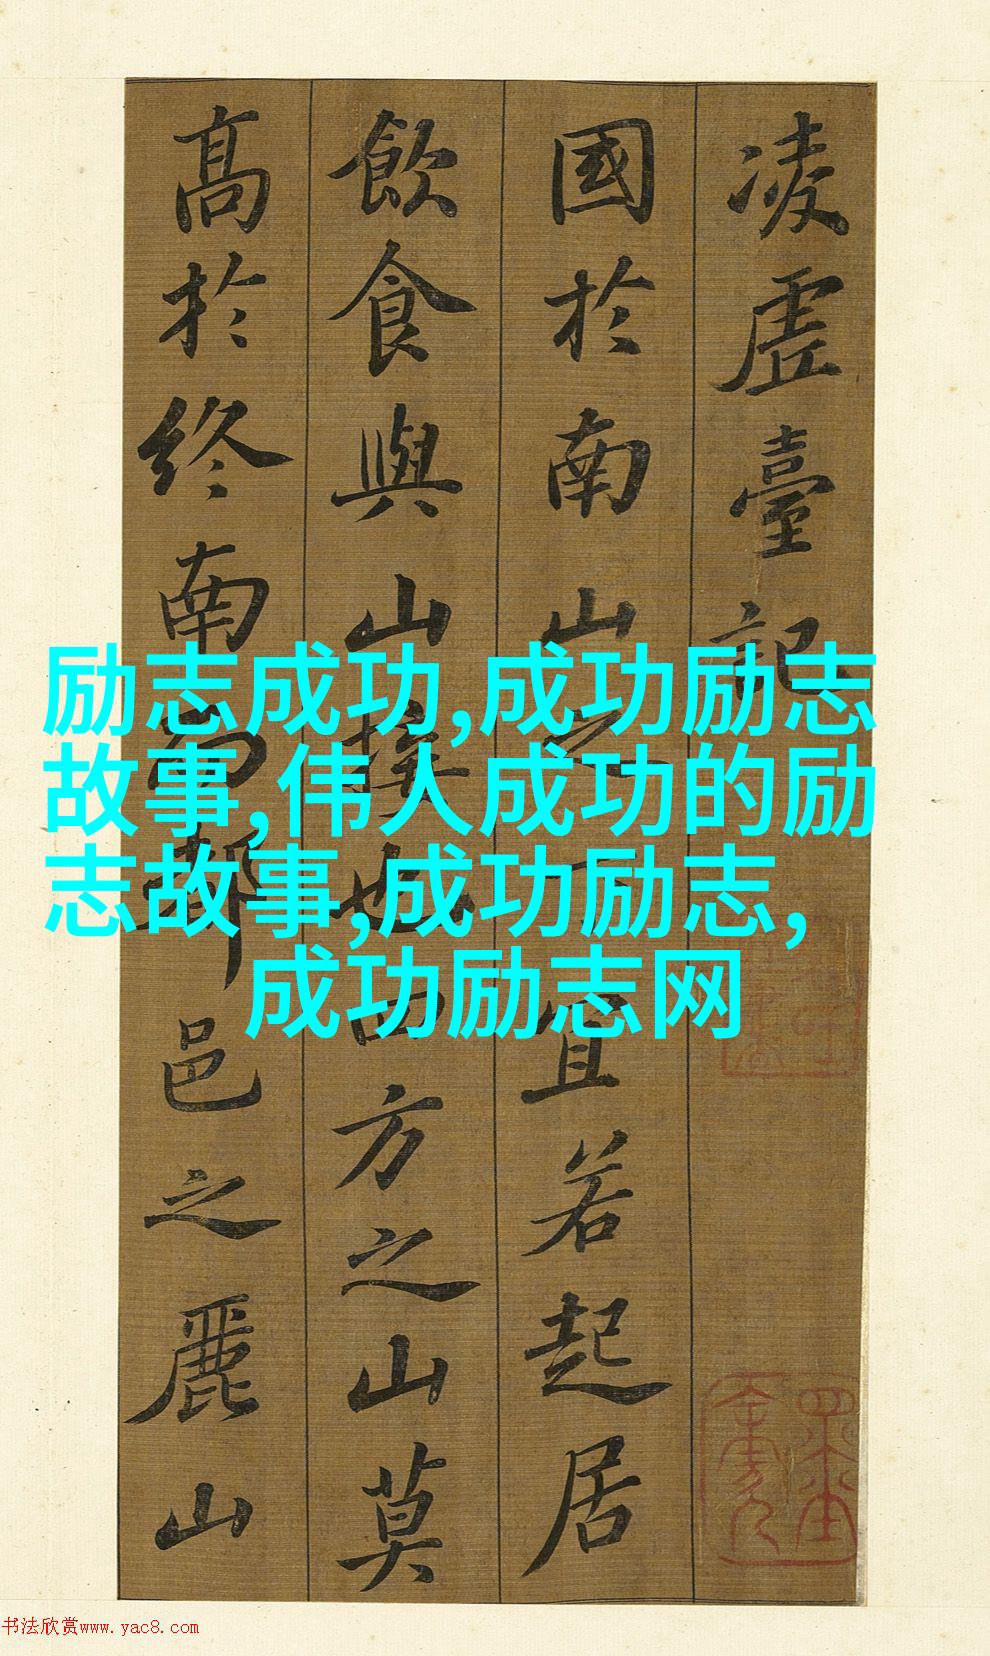 凌虛臺記
國於南山之下宜若起居
飲食與山接也四方之山莫
高於終南而都邑之麗山
励志成功,成功励志
故事,伟人成功的励
志故事,成功励志,
成功励志网
书法欣赏www.yac8.com